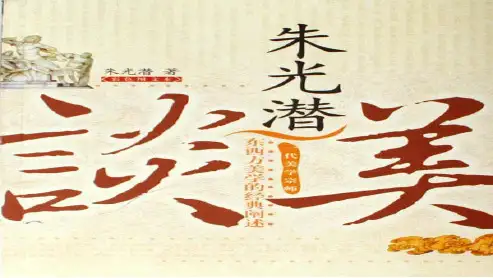 朱光潜 著
彩色图文本
朱光潜
談美
一代美学宗师
东西方美学的经典阐述